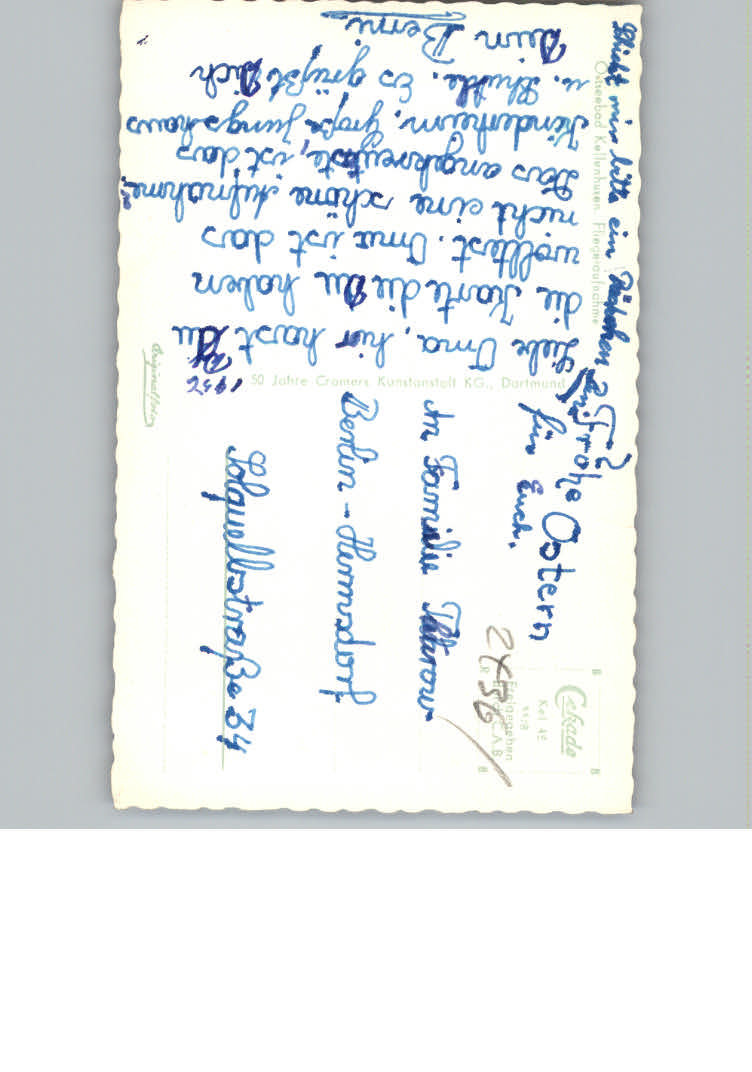 Liebe Oma, hier hast Du
die Karte die Du haben
wolltest. Oma ist das
nicht eine schöne Aufnahme
Das angekreutzte, ist das
Kinderheim, große Jungshaus
u. Es grüßt Dich
Dein Berni.
Schickt mir bitte ein
Frohe Ostern
für Euch.
An Familie
Berlin-Hermsdorf
Solquellstraße 34
2456
1956
Ostseebad Kellenhusen. Fliegeraufnahme
50 Jahre Cramers Kunstanstalt KG., Dortmund
Originalfoto
Cekade
Kel 45
Freigegeben